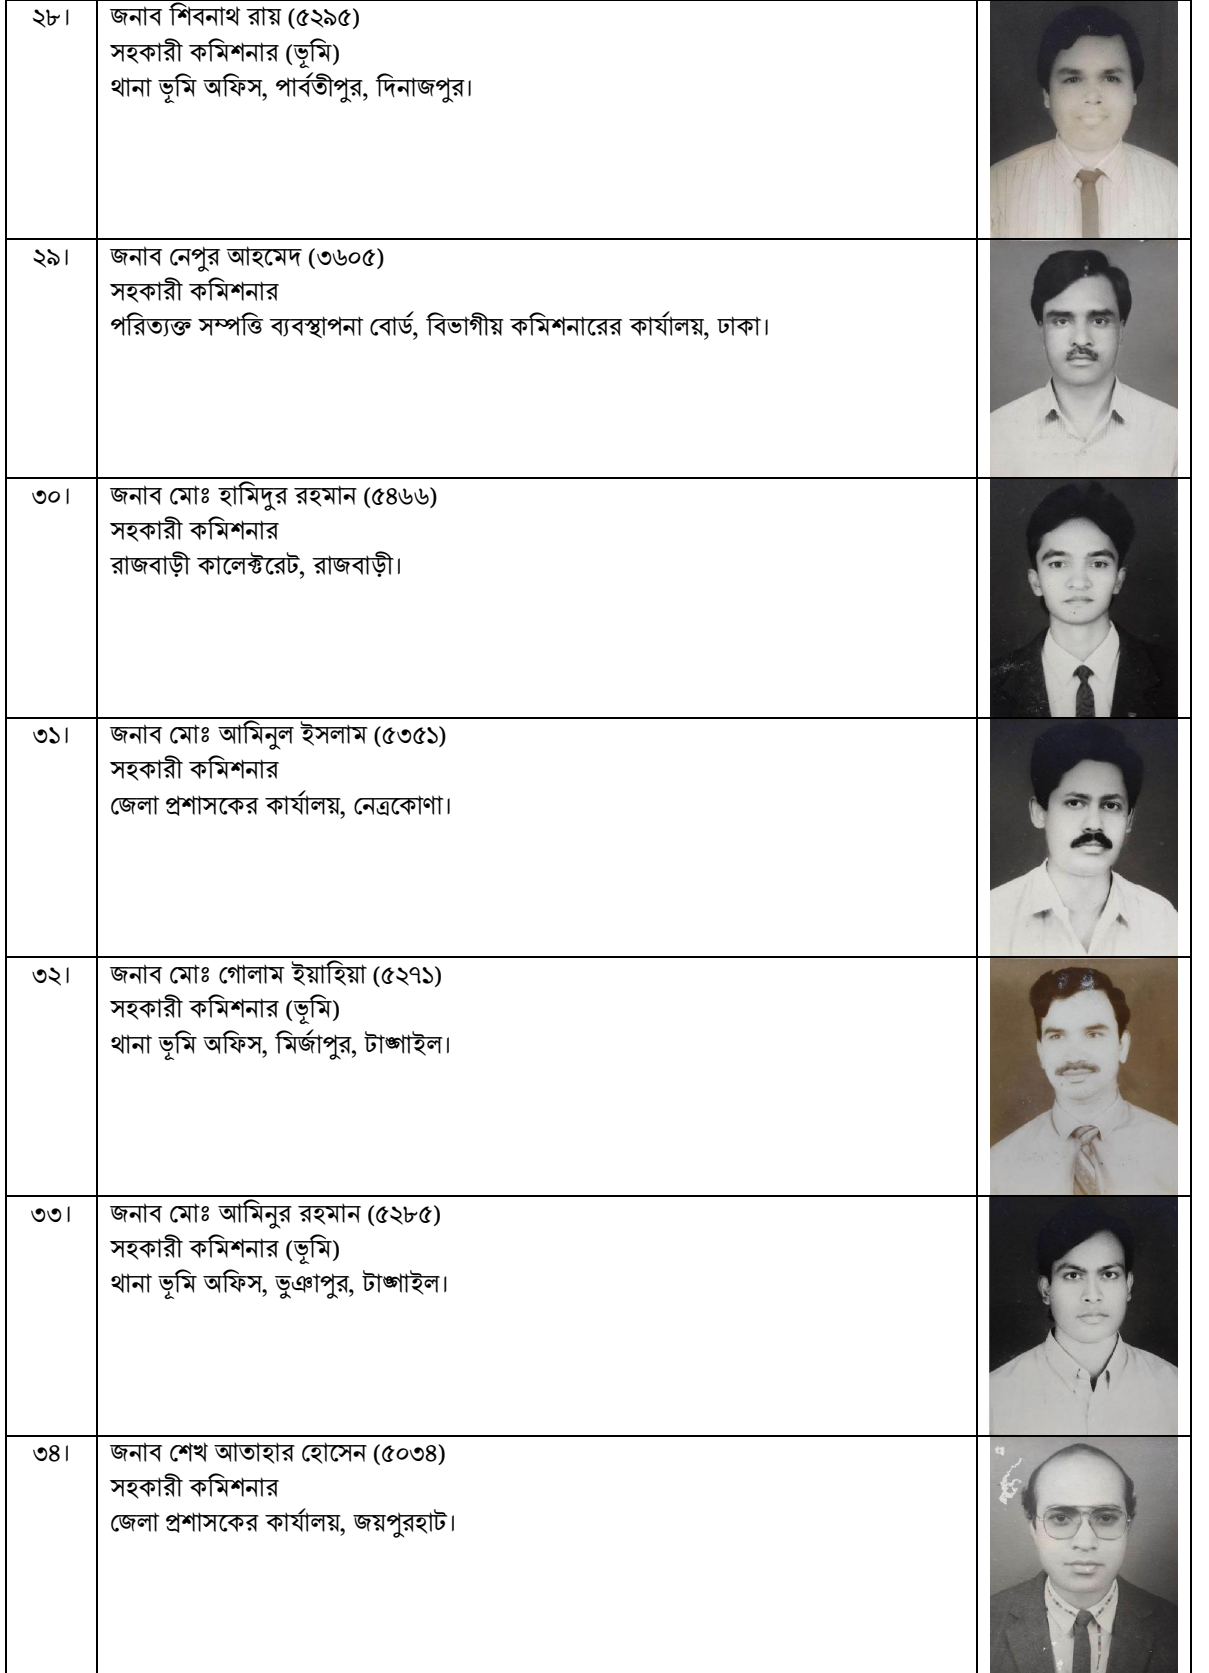 ২৮।
জনাব শিবনাথ রায় (৫২৯৫)
সহকারী কমিশনার (ভূমি)
থানা ভূমি অফিস, পার্বতীপুর, দিনাজপুর।
২৯।
জনাব নেপুর আহমেদ (৩৬০৫)
সহকারী কমিশনার
পরিত্যক্ত সম্পত্তি ব্যবস্থাপনা বোর্ড, বিভাগীয় কমিশনারের কার্যালয়, ঢাকা।
৩০।
জনাব মোঃ হামিদুর রহমান (৫৪৬৬)
সহকারী কমিশনার
রাজবাড়ী কালেক্টরেট, রাজবাড়ী।
৩১।
জনাব মোঃ আমিনুল ইসলাম (৫৩৫১)
সহকারী কমিশনার
জেলা প্রশাসকের কার্যালয়, নেত্রকোণা।
৩২।
জনাব মোঃ গোলাম ইয়াহিয়া (৫২৭১)
সহকারী কমিশনার (ভূমি)
থানা ভূমি অফিস, মির্জাপুর, টাঙ্গাইল।
৩৩।
জনাব মোঃ আমিনুর রহমান (৫২৮৫)
সহকারী কমিশনার (ভূমি)
থানা ভূমি অফিস, ভুঞাপুর, টাঙ্গাইল।
৩৪।
জনাব শেখ আতাহার হোসেন (৫০৩৪)
সহকারী কমিশনার
জেলা প্রশাসকের কার্যালয়, জয়পুরহাট।